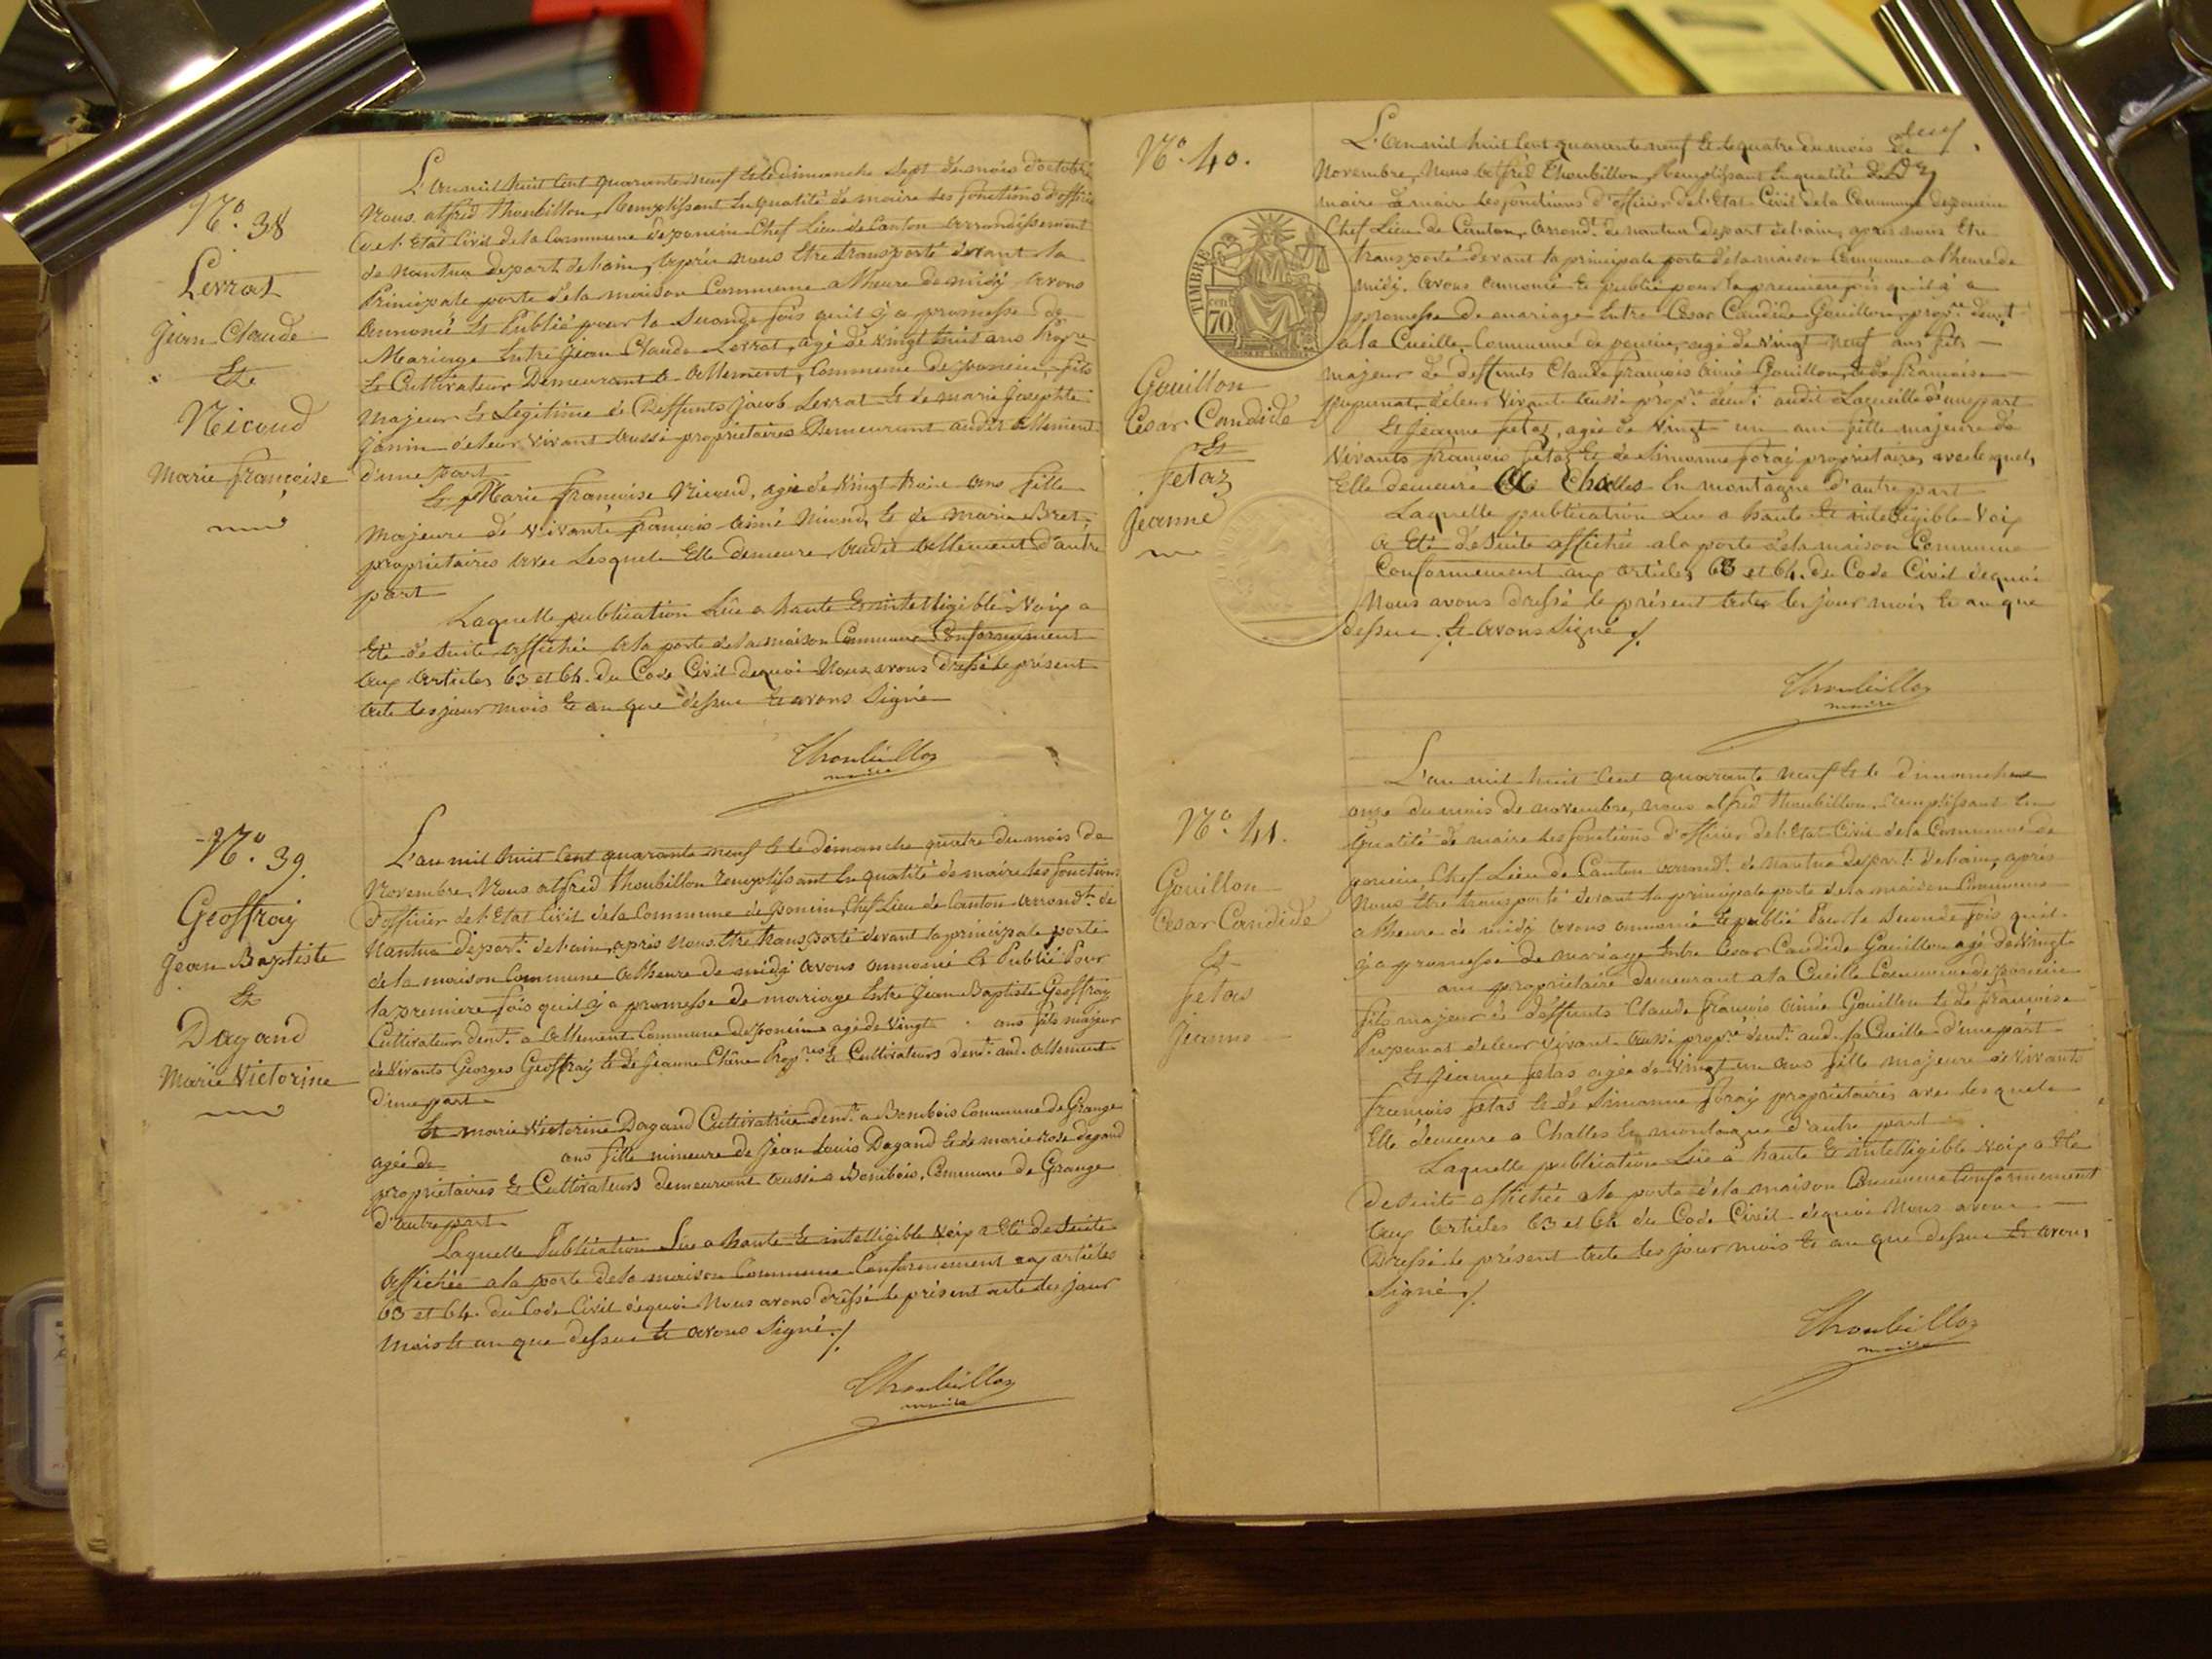 N.º 38
Levrat
Jean Claude
Et
Nicoud
Marie françoise
L'an mil huit Cent quarante neuf Et le dimanche Sept du mois d'octobre
Nous alfred thoubillon, Remplissant En qualité de maire des fonctions d'officier
de l'Etat Civil de la Commune de poncin Chef Lieu de Canton arrondissement
de Nantua depart. de l'ain, après nous Etre transporté devant la
Principale porte de la maison Commune a l'heure de midy avons
annoncé Et Publié pour la Seconde fois qu'il y a promesse de
Mariage Entre Jean Claude Levrat, agé de Vingt huit ans Prop.re
Et Cultivateur Demeurant a allement, Commune de poncin, fils
majeur Et Légitime de Deffunts Jacob Levrat Et de marie Josephte
Janin de leur Vivant aussi propriétaires Demeurant audit allement
d'une part
Et Marie françoise Nicoud, agée de Vingt trois ans fille
majeure de Vivants françois aimé Nicoud, Et de Marie Bret,
propriétaires avec Lesquels Elle demeure audit allement d'autre
part
Laquelle publication Lue a haute Et intelligible Voix a
Eté de Suite affichée a la porte de la maison Commune Conformement
aux articles 63 et 64. du Code Civil dequoi Nous avons dressé le présent
acte les jour mois Et an que dessus Et avons Signé
Thoubillon
maire
N.º 39.
Geoffray
Jean Baptiste
Et
Dagand
Marie Victorine
L'an mil huit Cent quarante neuf Et le dimanche quatre du mois de
Novembre, Nous alfred thoubillon remplissant En qualité de maire les fonctions
d'officier de l'Etat Civil de la Commune de poncin, Chef Lieu de Canton arrond.t de
Nantua depart. de l'ain, après nous Etre transporté devant la principale porte
de la maison Commune a l'heure de midy avons annoncé Et Publié Pour
la premiere fois qu'il y a promesse de mariage Entre Jean Baptiste Geoffray
Cultivateur dem.t a allement Commune de poncin agé de Vingt ans fils majeur
de Vivants Georges Geoffray Et de Jeanne Chêne Prop.res Et Cultivateurs dem.t aud. allement
d'une part
Et marie Victorine Dagand Cultivatrice dem.t a Bombois Commune de Grange
agée de ans fille mineure de Jean Louis Dagand Et de marie rose dagand
propriétaires Et Cultivateurs demeurant aussi a Bombois, Commune de Grange
d'autre part
Laquelle Publication Lue a haute Et intelligible Voix a Eté de Suite
affichée a la porte de la maison Commune Conformement aux articles
63 et 64. du Code Civil dequoi Nous avons dréssé le présent acte les jour
mois Et an que dessus Et avons Signé ./.
Thoubillon
maire
N.º 40.
TIMBRE
70 cen.
Gouillon
César Candide
Et
fetaz
Jeanne
L'an mil huit Cent quarante neuf Et le quatre du mois de
Novembre, Nous alfred Thoubillon, Remplissant En qualité de
maire de maire les fonctions d'officier de l'Etat Civil de la Commune de poncin
Chef Lieu de Canton, arrond.t de nantua depart. de l'ain, après nous Etre
transporté devant la principale porte de la maison Commune a l'heure de
midy. avons annoncé Et publié pour la premiere fois qu'il y a
promesse de mariage Entre César Candide Gouillon, prop.re dem.t
a la Cueille, Commune de poncin, agé de Vingt neuf ans fils
majeur de deffunts Claude françois aimé Gouillon, Et de françoise
Pupunat, de leur Vivant aussi prop.re dem.t audit Lacueille d'une part
Et Jeanne fetaz, agée de Vingt un ans fille majeure de
Vivants françois fetaz Et de Simonne foray propriétaires, avec lesquels
Elle demeure a Challes En montagne d'autre part
Laquelle publication Lue a haute Et intelligible Voix
a Eté de Suite affichée a la porte de la maison Commune
Conformement aux articles 63 et 64. du Code Civil dequoi
Nous avons dressé le présent acte les jour mois Et an que
dessus. Et avons Signé ./.
Thoubillon
maire
N.º 41.
Gouillon
César Candide
Et
fetas
Jeanne
L'an mil huit Cent quarante neuf Et le dimanche
onze du mois de novembre, nous alfred thoubillon. remplissant En
qualité de maire les fonctions d'officier de l'Etat Civil de la Commune de
poncin Chef Lieu de Canton arrond.t de Nantua depart. de l'ain, après
nous Etre transporté devant la principale porte de la maison Commune
a l'heure de midy avons annoncé Et publié Pour la Seconde fois qu'il
y a promesse de mariage Entre César Candide Gouillon agé de Vingt
ans propriétaire demeurant a la Cueille Commune de poncin
fils majeur de deffunts Claude François aimé Gouillon Et de françoise
Pupunat de leur Vivant aussi prop.re dem.t aud. la Cueille d'une part
Et Jeanne fetas agée de Vingt un ans fille majeure de Vivants
françois fetas Et de Simonne foray propriétaires avec lesquels
Elle demeure a Challes En montagne d'autre part
Laquelle publication Lue a haute Et intelligible Voix a Eté
de Suite affichée a la porte de la maison Commune Conformement
aux articles 63 et 64 du Code Civil dequoi Nous avons
dressé le présent acte les jour mois Et an que dessus Et avons
Signé ./.
Thoubillon
maire